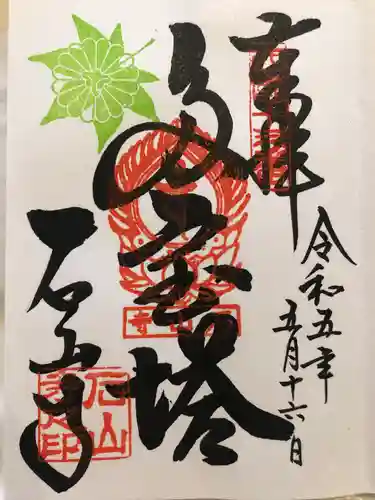 奉拝
令和五年
五月十六日
多宝塔
石山寺